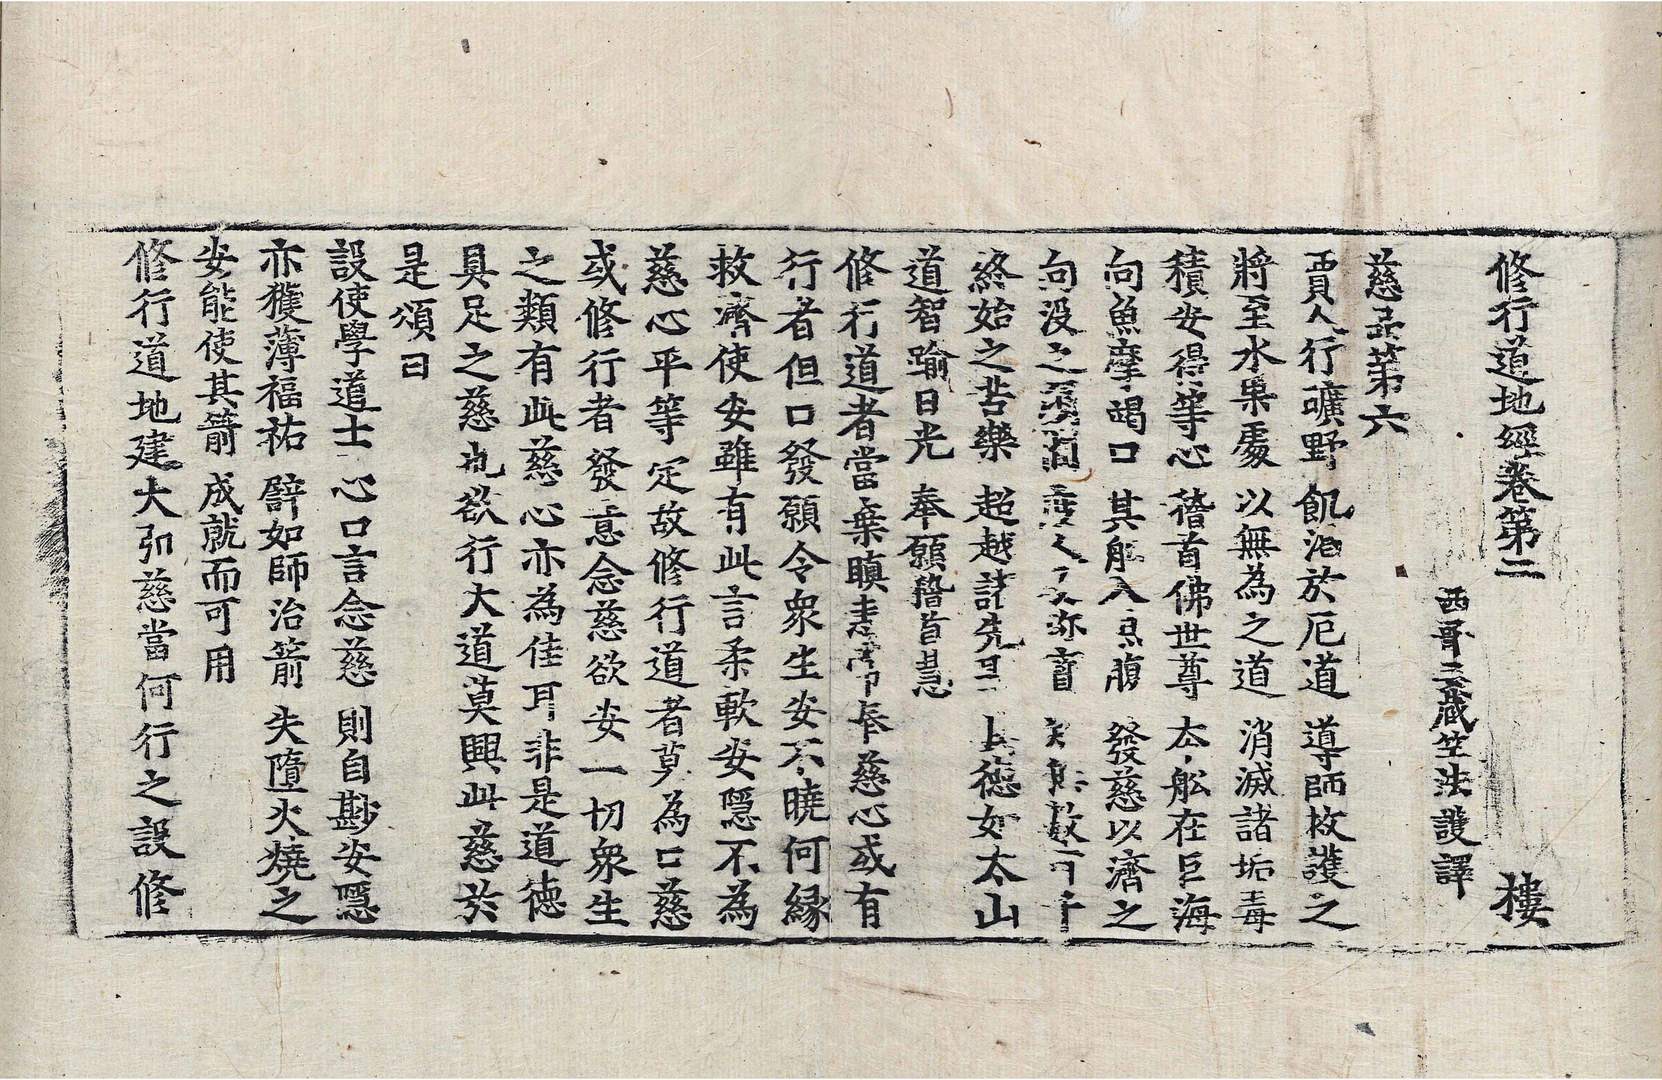 修行道地經卷第二 樓
西晉三藏竺法護譯
慈品第六
賈人行曠野 飢渴於厄道 導師救護之
將至水果處 以無為之道 消滅諸垢毒
積安得等心 稽首佛世尊 大舩在巨海
向魚摩竭口 其舩入魚腹 發慈以濟之
向沒之
終始之苦樂 超越諸先 上德如太山
道智踰日光 奉願稽首慧
修行道者當棄瞋恚常奉慈心或有
行者但口發願令衆生安不曉何縁
救濟使安雖有此言柔軟安隱不為
慈心平等定故修行道者莫為口慈
或修行者發意念慈欲安一切衆生
之類有此慈心亦為佳耳非是道德
具足之慈也欲行大道莫興此慈於
是頌曰
設使學道士 心口言念慈 則自尠安隱
亦獲薄福祐 譬如師治箭 失墮火燒之
安能使其箭 成就而可用
修行道地建大弘慈當何行之設修